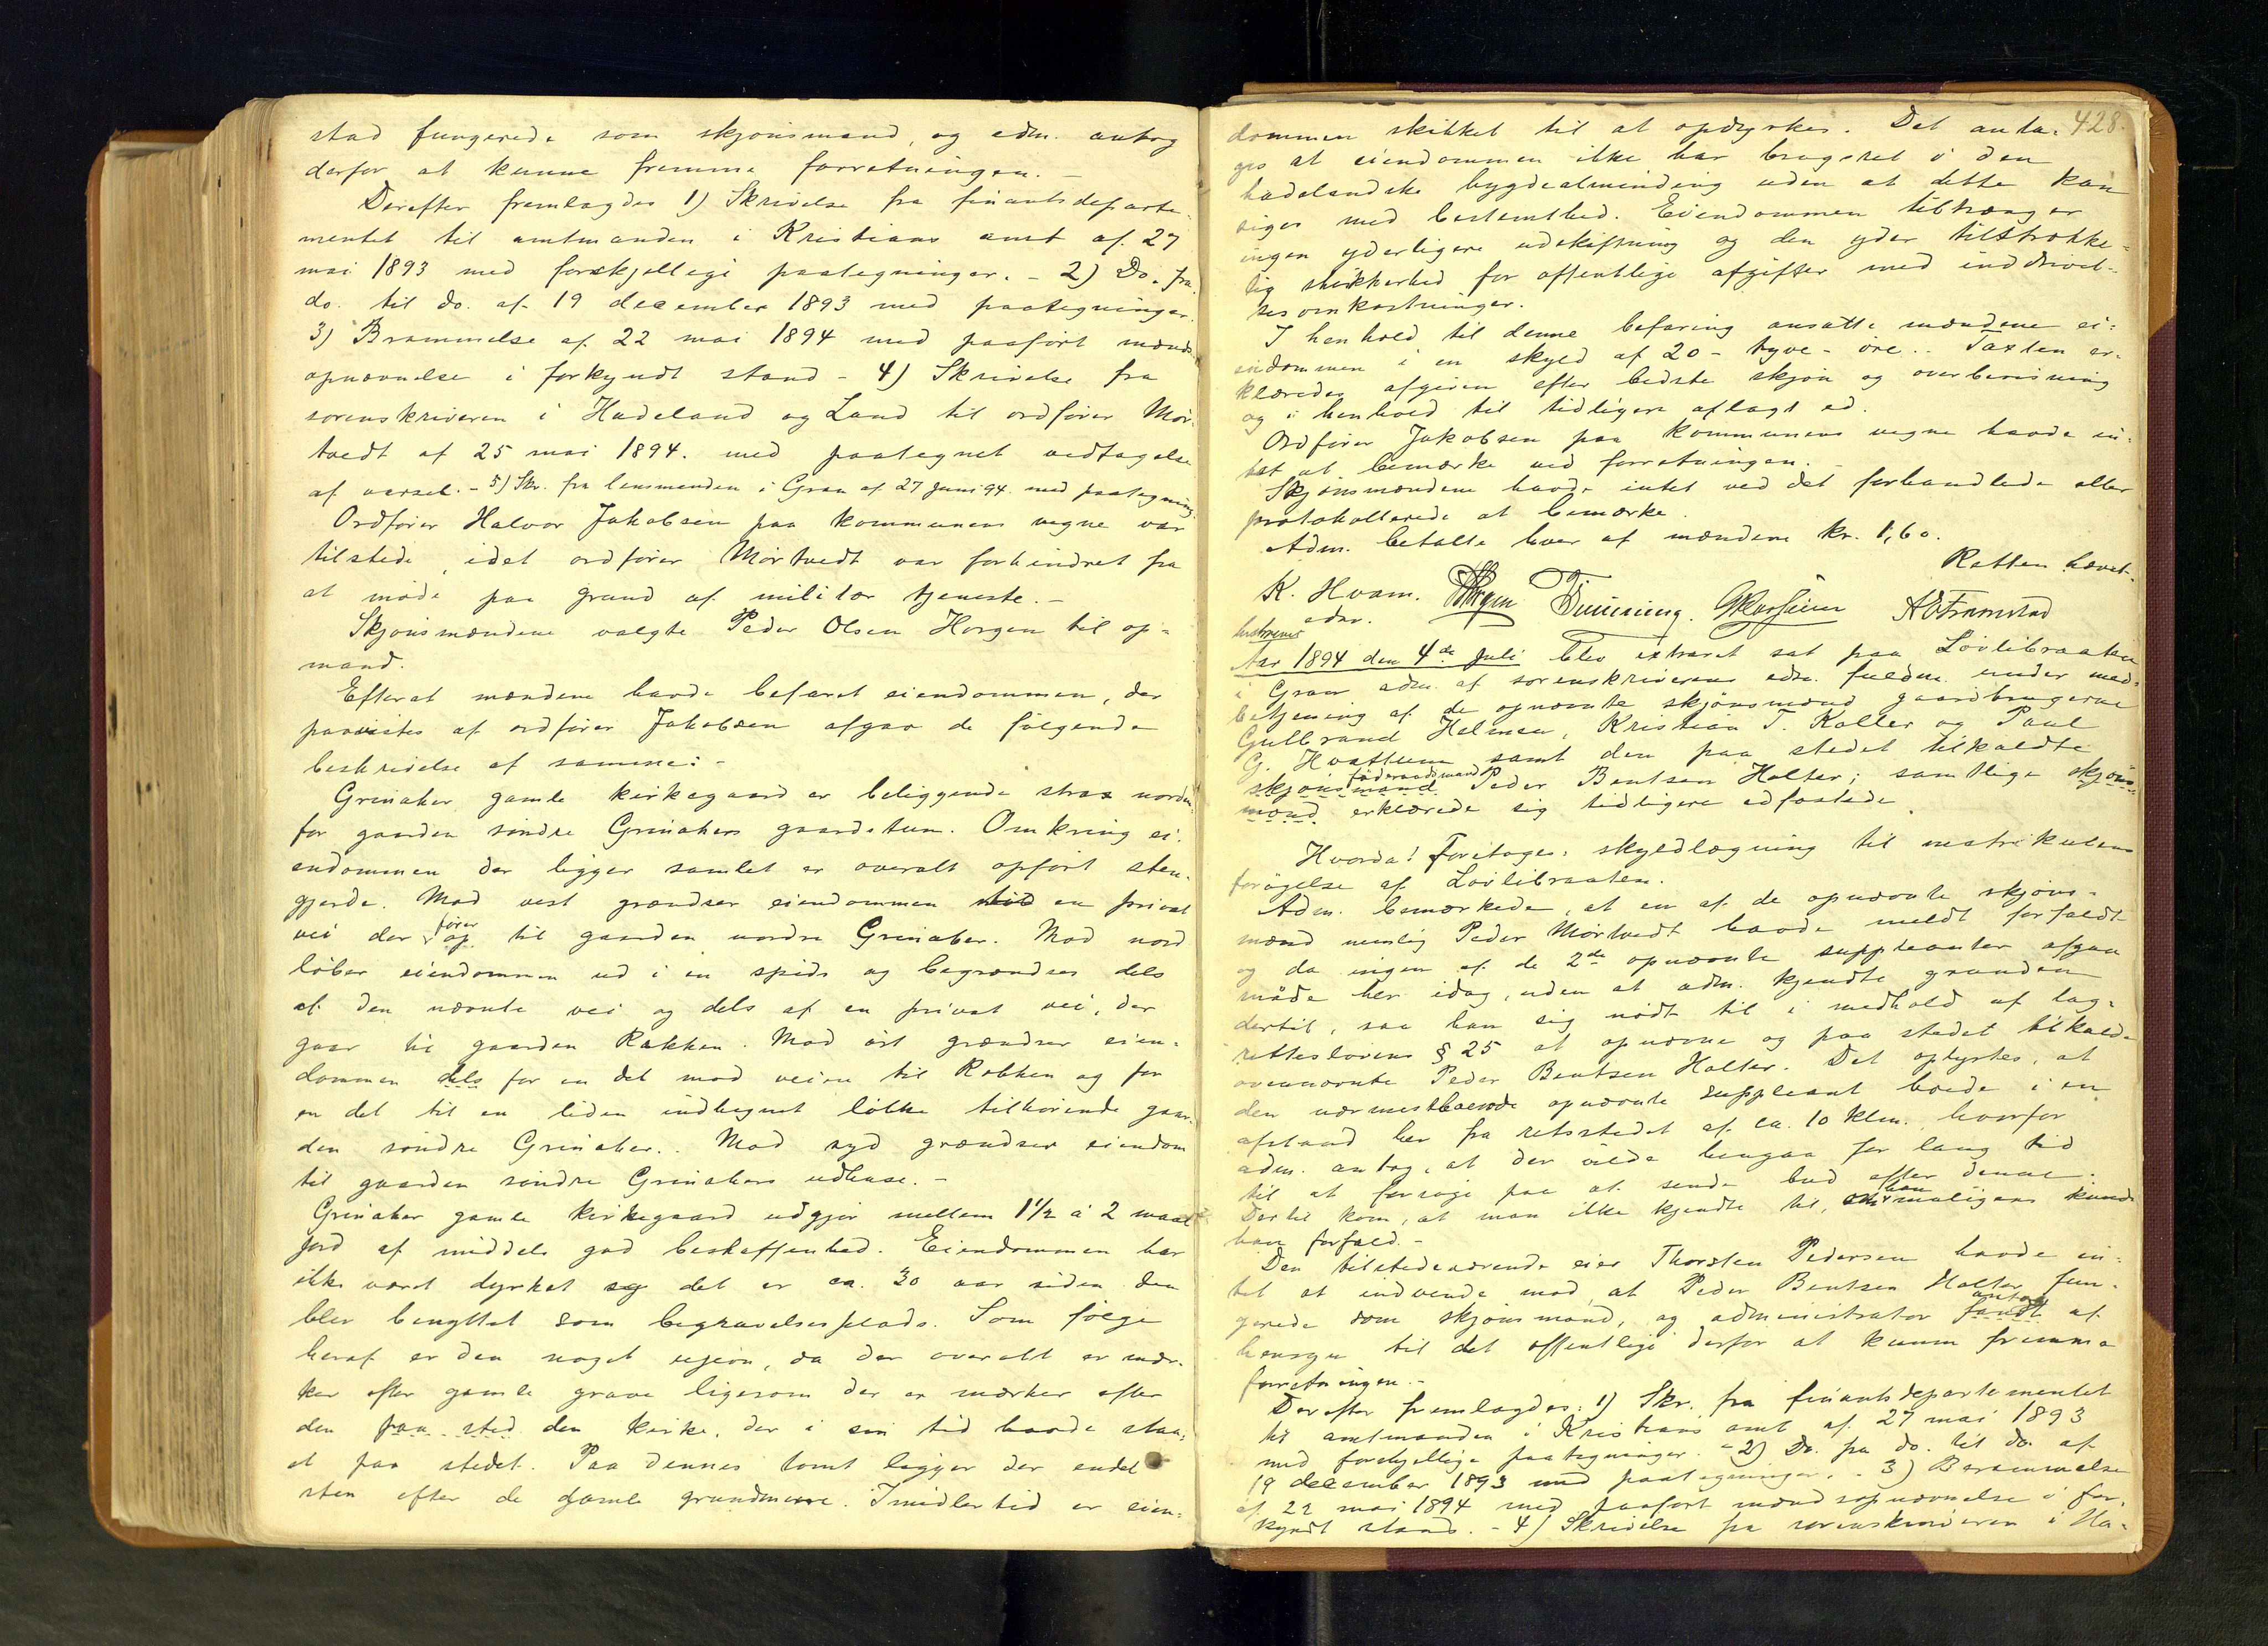 stad fungerede som skjønsmand, og adm. antog
derfor at kunne fremme forretningen. –
Derefter fremlagdes 1) Skrivelse fra finantsdeparte-
mentet til amtmanden i Kristians amt af 27
mai 1893 med forskjellige paategninger. – 2) Do. fra
do. til do. af 19 december 1893 med paategninger.
3) Brammelse af 22 mai 1894 med paaført mænds-
opnævnelse i forkyndt stand – 4) Skrivelse fra
sorenskriveren i Hadeland og Land til ordfører Mør-
tvedt af 25 mai 1894. med paategnet vedtagelse
af varsel. – 5) Skr. fra lensmanden i Gran af 27 juni 94 med paategning.
Ordfører Halvor Jakobsen paa kommunens vegne var
tilstede, idet ordfører Mørtvedt var forhindret fra
at møde paa grund af militær tjeneste. –
Skjønsmændene valgte Peder Olsen Horgen til op-
mand.
Efterat mændene havde befaret eiendommen, der
paavistes af ordfører Jakobsen afgav de følgende
beskrivelse af samme: –
Grinaker gamle kirkegaard er beliggende strax norden-
for gaarden søndre Grinakers gaardstun. Omkring ei-
endommen der ligger samlet er overalt opført sten-
gjerde. Mod vest grændser eiendommen til en privat
vei der fører op til gaarden nordre Grinaker. Mod nord
løber eiendommen ud i en spids og begrændses dels
af den nævnte vei og dels af en privat vei, der
gaar til gaarden Rækken. Mod øst grændser eien-
dommen dels for en del mod veien til Rækken og for
en del til en liden indhegnet løkke tilhørende gaar-
den søndre Grinaker. . Mod syd grændser eiendom
til gaarden søndre Grinakers udhuse. –
Grinaker gamle kirkegaard udgjør mellem 1½ à 2 maal
jord af middels god beskaffenhed. Eiendommen har
ikke været dyrket og det er ca. 30 aar siden den
blev benyttet som begravelsesplads. Som følge
heraf er den noget ujevn, da der overalt er mær-
ker efter gamle grave ligesom der er mærker efter
den paa sted den kirke, der i sin tid havde staa-
et paa stedet. Paa dennes tomt ligger der endel
sten efter de gamle grundmure. Imidlertid er eien-
428.
dommen skikket til at opdyrkes. Det anta-
ges at eiendommen ikke har brugsret i den
hadelandske bygdealminding uden at dette kan
siges med bestemthed. Eiendommen tiltrænger
ingen yderligere udskiftning og den yder tilstrække-
lig sikkerhed for offentlige afgifter med inddrivel-
sesomkostninger.
I henhold til denne befaring ansatte mændene ei-
endommen i en skyld af 20 – tyve – øre. . Taxten er-
klæredes afgiven efter bedste skjøn og overbevisning
og i henhold til tidligere aflagt ed.
Ordfører Jakobsen paa kommunens vegne havde in-
tet at bemærke ved forretningen. –
Skjønsmændene havde intet ved det forhandlede eller
protokollerede at bemærke.
Adm. betalte hver af mændene kr. 1,60.
Retten hævet.
K. Hvam.
edsv.
Aar 1894 den 4de Juli blev extraret sat paa Løvlibraaten
i Gran adm. af sorenskriverens edsv. fuldm. under med-
betjening af de opnævnte skjønsmænd gaardbrugerne
Gulbrand Helmen, Kristian T. Koller og Paul
G. Hvattum samt den paa stedet tilkaldte
skjønsmand føderaadsmand Peder Bentsen Halter; samtlige skjøns-
mænd erklærede sig tidligere edfæstede.
Hvorda! Foretoges: skyldlægning til matrikulens
forøgelse af Løvlibraaten.
Adm. bemærkede, at en af de opnævnte skjøns-
mænd nemlig Peder Mørtvedt havde meldt forfald
og da ingen af de 2de opnævnte suppleanter afgav
møde her idag, uden at adm. kjendte grunden
dertil, saa han sig nødt til i medhold af lag-
retteslovens § 25 at opnævne og paa stedet tilkalde
ovennævnte Peder Bentsen Halter. Det oplystes, at
den nærmestboende opnævnte suppleant boede i en
afstand her fra retsstedet af ca. 10 klm., hvorfor
adm. antog, at der vilde hengaa for lang tid
til at forsøge paa at sende bud efter denne.
Dertil kom, at man ikke kjendte til, om han muligens kunde
have forfald. –
Den tilstedeværende eier Thorsten Pedersen havde in-
tet at indvende mod, at Peder Bentsen Halter fun-
gerede som skjønsmand, og administrator fandt antog af
hensyn til det offentlige derfor at kunne fremme
forretningen. –
Derefter fremlagdes: 1) Skr. fra finantsdepartementet
til amtmanden i Kristians amt af 27 mai 1893
med forskjellige paategninger. – 2) Do. fra do. til do. af
19 december 1893 med paategninger. – 3) Berammelse
af 22 mai 1894 med paaført mændsopnævnelse i for-
kyndt stand. – 4) Skrivelse fra sorenskriveren i Ha-